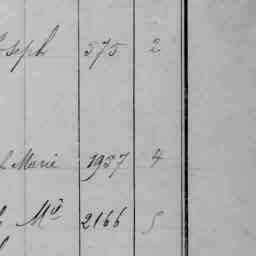 seph 575. 2
Marie 1937 4
Md 2166 5